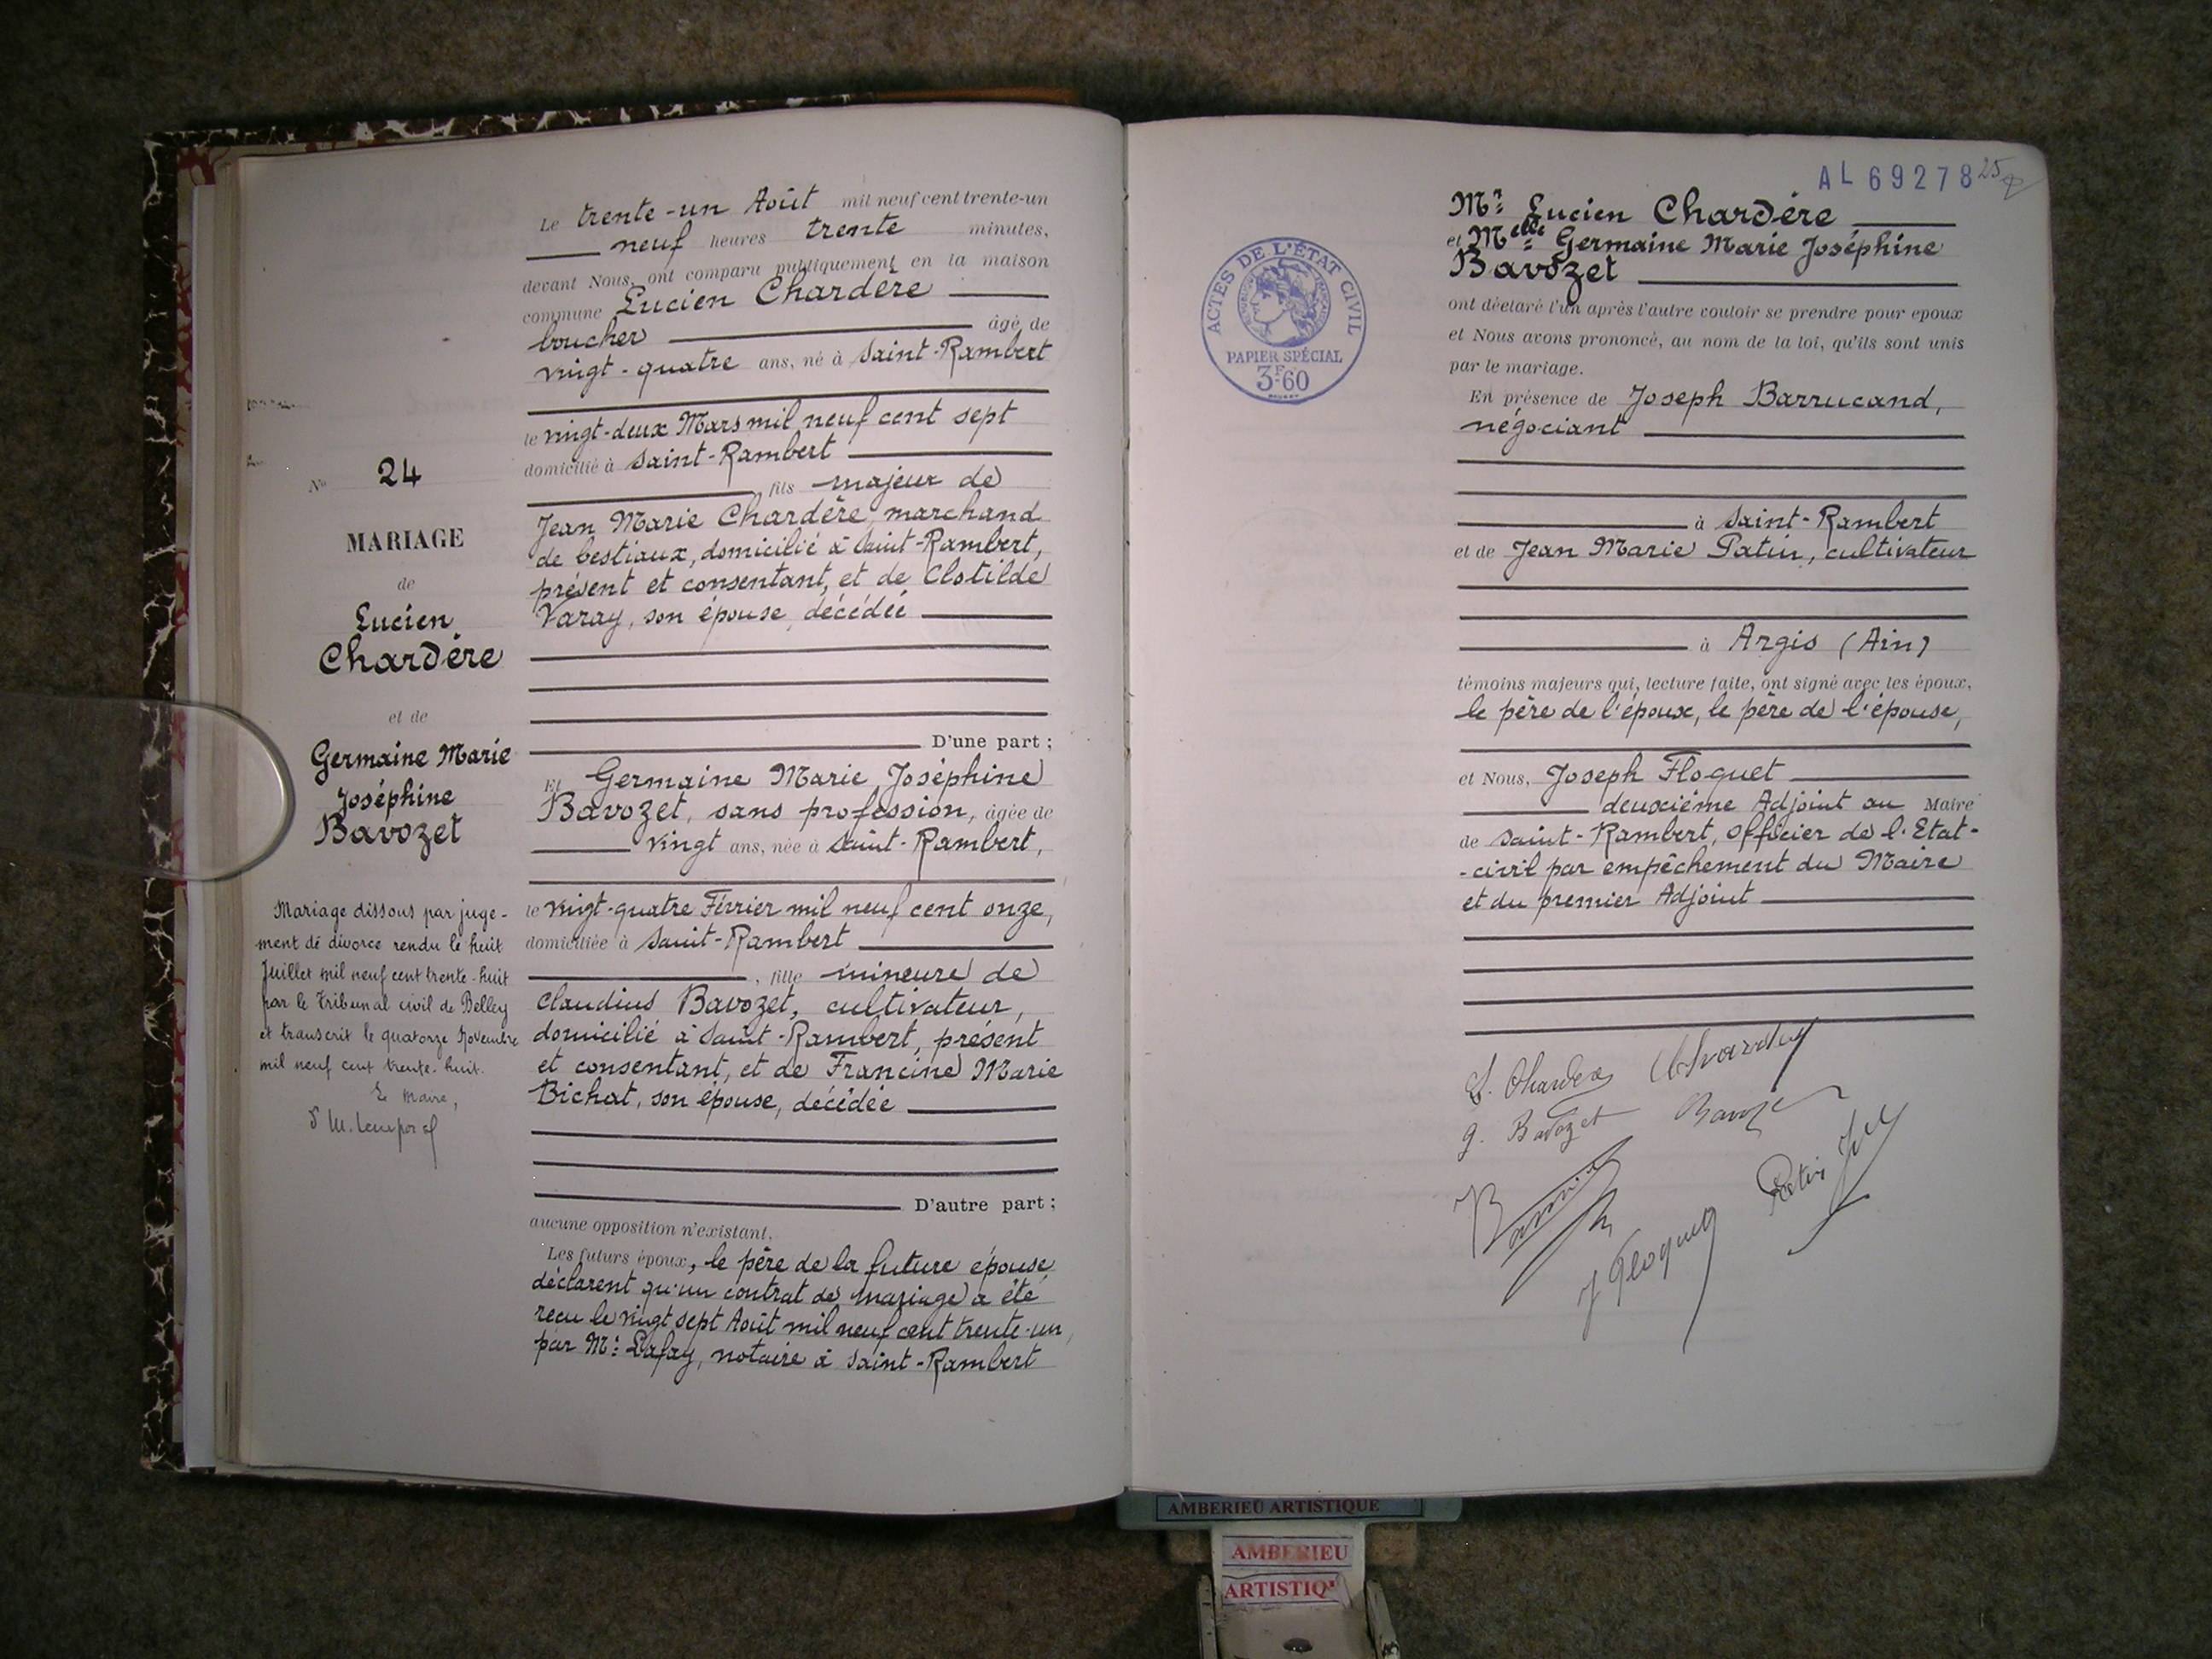 Le trente-un Août mil neuf cent trente-un
neuf heures trente minutes,
devant Nous, ont comparu publiquement en la maison
commune Lucien Chardère
boucher âgé de
vingt-quatre ans, né à Saint-Rambert
le vingt-deux Mars mil neuf cent sept
domicilié à Saint-Rambert
fils majeur de
Jean Marie Chardère, marchand
de bestiaux, domicilié à Saint-Rambert,
présent et consentant, et de Clotilde
Varay, son épouse, décédée
D'une part ;
Et Germaine Marie Joséphine
Bavozet, sans profession, âgée de
vingt ans, née à Saint-Rambert,
le vingt-quatre Février mil neuf cent onze,
domiciliée à Saint-Rambert
, fille mineure de
Claudius Bavozet, cultivateur,
domicilié à Saint-Rambert, présent
et consentant, et de Francine Marie
Bichat, son épouse, décédée
D'autre part ;
aucune opposition n'existant,
Les futurs époux, le père de la future épouse
déclarent qu'un contrat de mariage a été
reçu le vingt sept Août mil neuf cent trente-un,
par Me: Lafay, notaire à Saint-Rambert
No 24
MARIAGE
de
Lucien
Chardère
et de
Germaine Marie
Joséphine
Bavozet
Mariage dissous par juge-
ment de divorce rendu le huit
Juillet mil neuf cent trente-huit
par le Tribunal civil de Belley
et transcrit le quatorze Novembre
mil neuf cent trente-huit.
Le Maire,
AL 69278
25
ACTES DE L'ÉTAT CIVIL
PAPIER SPÉCIAL
3F.60
Mr Lucien Chardère
et Melle Germaine Marie Joséphine
Bavozet
ont déclaré l'un après l'autre vouloir se prendre pour époux
et Nous avons prononcé, au nom de la loi, qu'ils sont unis
par le mariage.
En présence de Joseph Barrucand,
négociant
à Saint-Rambert
et de Jean Marie Patin, cultivateur
à Argis (Ain)
témoins majeurs qui, lecture faite, ont signé avec les époux,
le père de l'époux, le père de l'épouse,
et Nous, Joseph Floquet
deuxième Adjoint au Maire
de Saint-Rambert, officier de l'Etat-
-civil par empêchement du Maire
et du premier Adjoint
L. Chardère
G. Bavozet
J Floquet
AMBERIEU ARTISTIQUE
AMBERIEU
ARTISTIQ